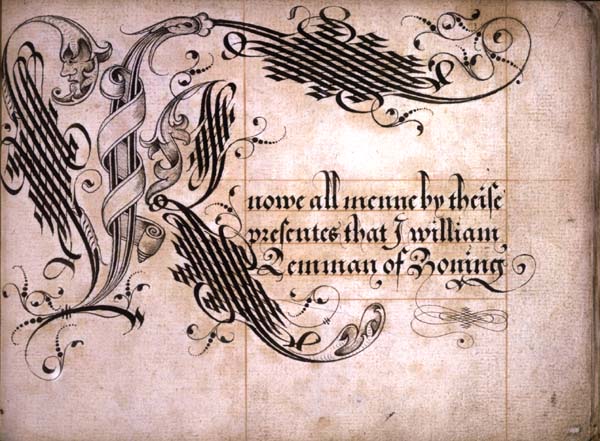 Knowe all menne by theise
presentes that I william
Lemman of Boning